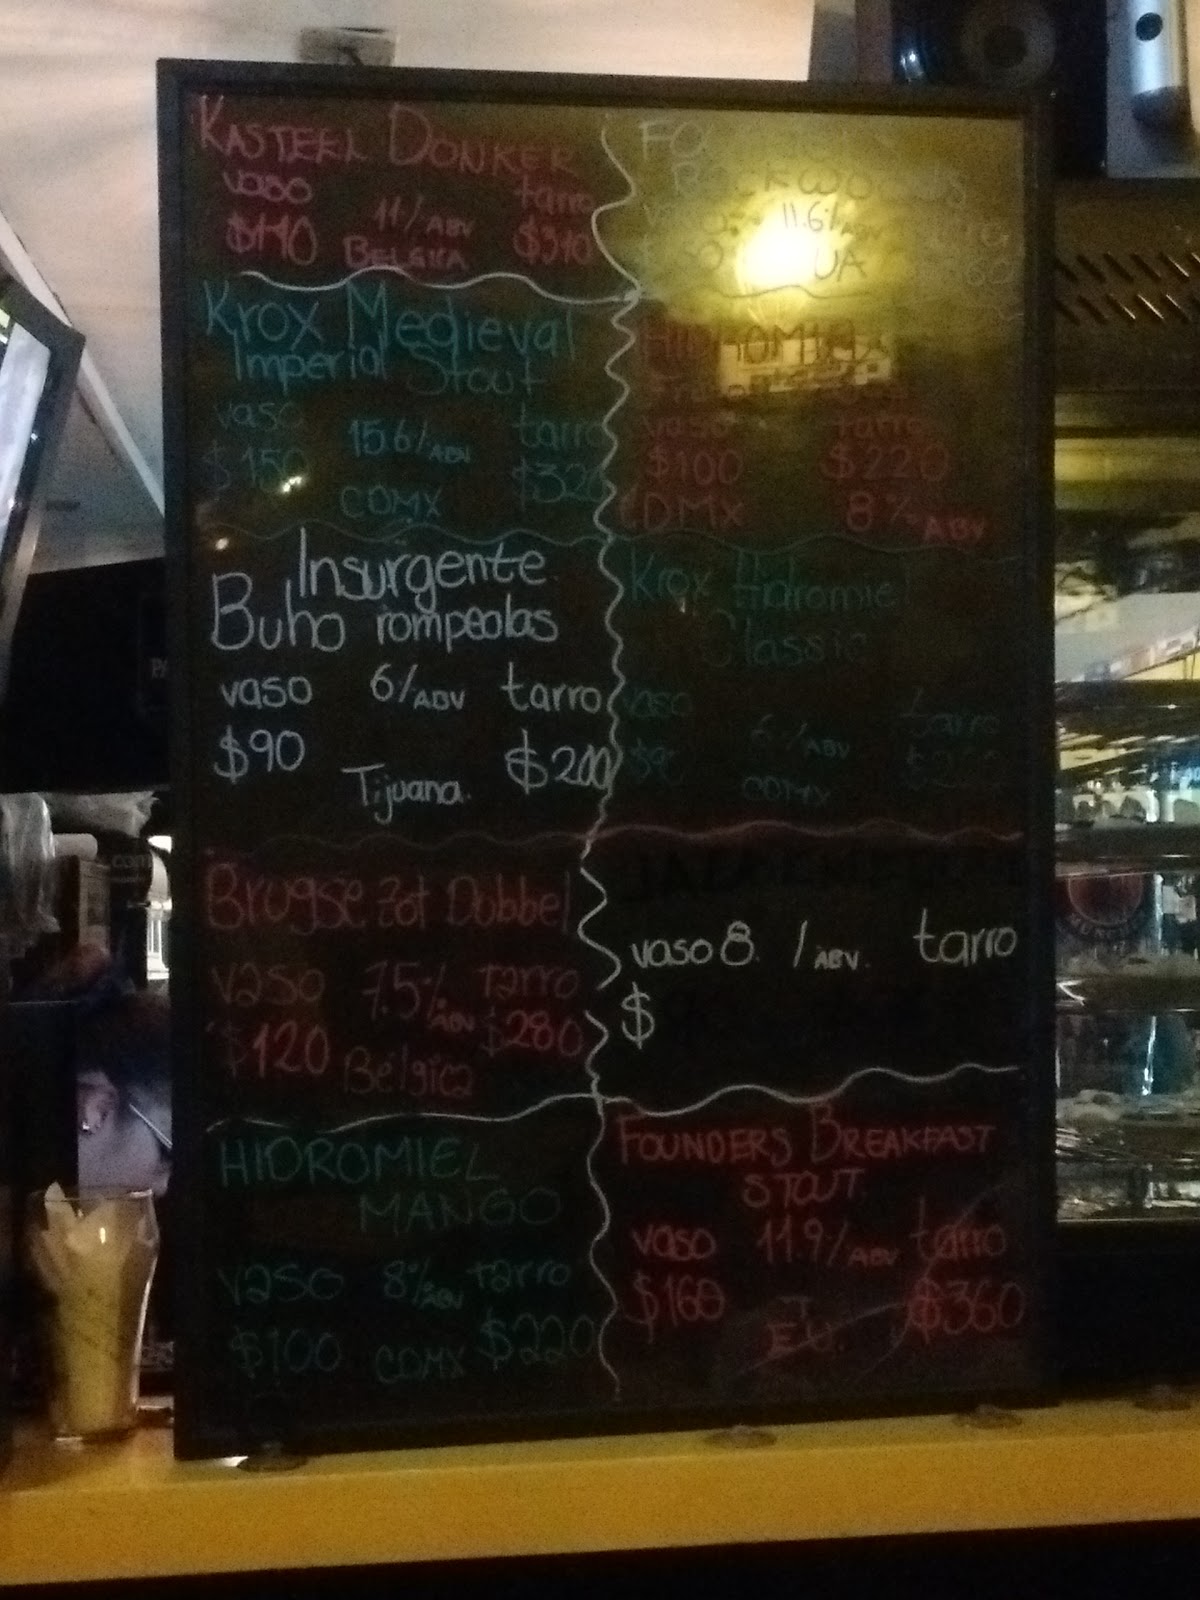 KASTEEL DONKER
vaso tarro
$140 11%ABV $310
BELGICA
Krox Medieval
Imperial Stout
vaso 15.6%ABV tarro
$150 $320
CDMX
Insurgente
Buho rompeolas
vaso 6%ABV tarro
$90 $200
Tijuana.
Brugse Zot Dubbel
vaso 7.5%ABV tarro
$120 $280
Bélgica
HIDROMIEL
MANGO
vaso 8%ABV tarro
$100 CDMX $220
BACKWOODS
11.6%ABV
HIDROMIEL
vaso tarro
$100 $220
CDMX 8%ABV
Krox Hidromiel
Classic
vaso tarro
$90 6%ABV
CDMX
vaso 8. %ABV. tarro
$
FOUNDERS BREAKFAST
STOUT
vaso 11.9%ABV tarro
$160 $360
E.U.